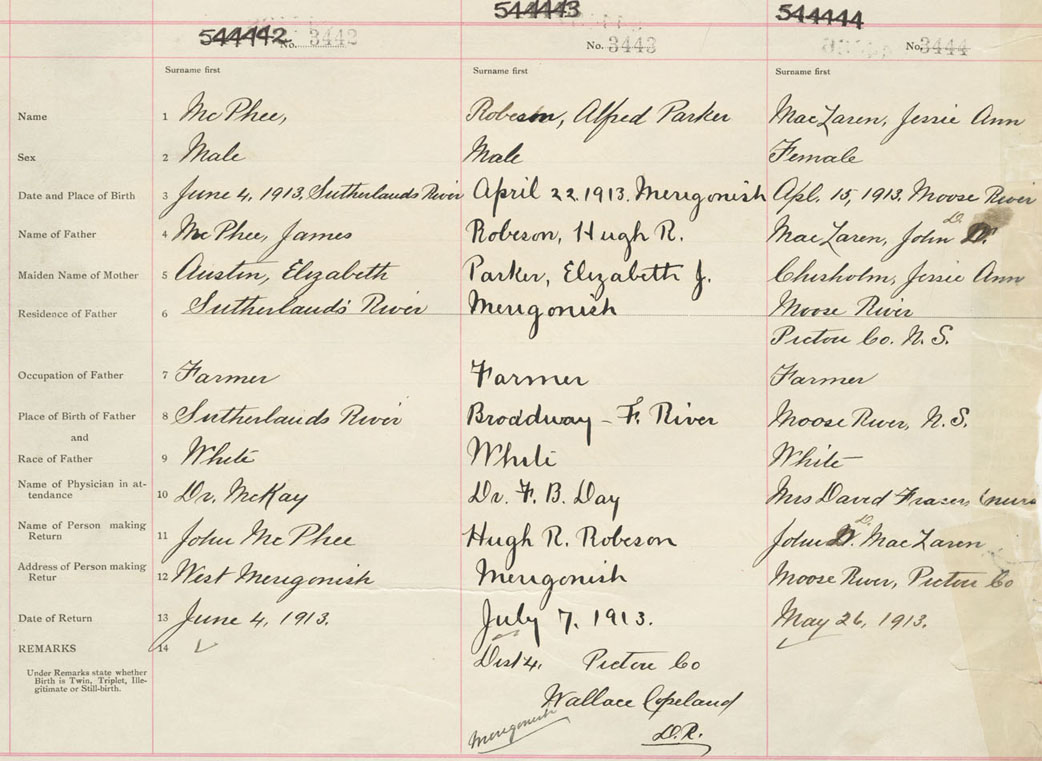 544442 No. 3442 544443 No. 3443 544444 No. 3444
Surname first Surname first Surname first
Name 1 McPhee, Robeson, Alfred Parker MacLaren, Jessie Ann
Sex 2 Male Male Female
Date and Place of Birth 3 June 4, 1913, Sutherlands River April 22, 1913. Merigonish Apl. 15, 1913. Moose River
Name of Father 4 McPhee, James Robeson, Hugh R. MacLaren, John D.
Maiden Name of Mother 5 Austin, Elizabeth Parker, Elizabeth J. Chisholm, Jessie Ann
Residence of Father 6 Sutherland's River Merigonish Moose River
Pictou Co. N. S.
Occupation of Father 7 Farmer Farmer Farmer
Place of Birth of Father 8 Sutherlands River Broadway - F. River Moose River, N. S.
and
Race of Father 9 White White White
Name of Physician in at-
tendance 10 Dr. McKay Dr. F. B. Day Mrs David Frasers
Name of Person making
Return 11 John McPhee Hugh R. Robeson John D. MacLaren
Address of Person making
Retur 12 West Merigonish Merigonish Moose River, Pictou Co
Date of Return 13 June 4, 1913. July 7, 1913. May 26, 1913.
REMARKS 14
Dist 4. Pictou Co
Under Remarks state whether
Birth is Twin, Triplet, Ille-
gitimate or Still-birth.
Wallace Copeland
Merigonish D.R.